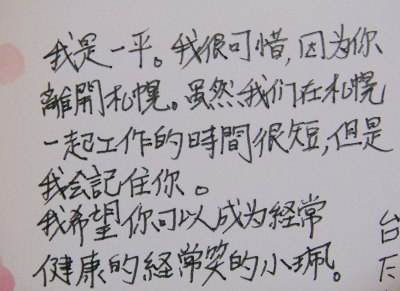 我是一平。我很可惜,因为你
離開札幌。虽然我们在札幌
一起工作的時間很短,但是
我会記住你。
我希望你可以成为経常
健康的経常笑的小珮。
台